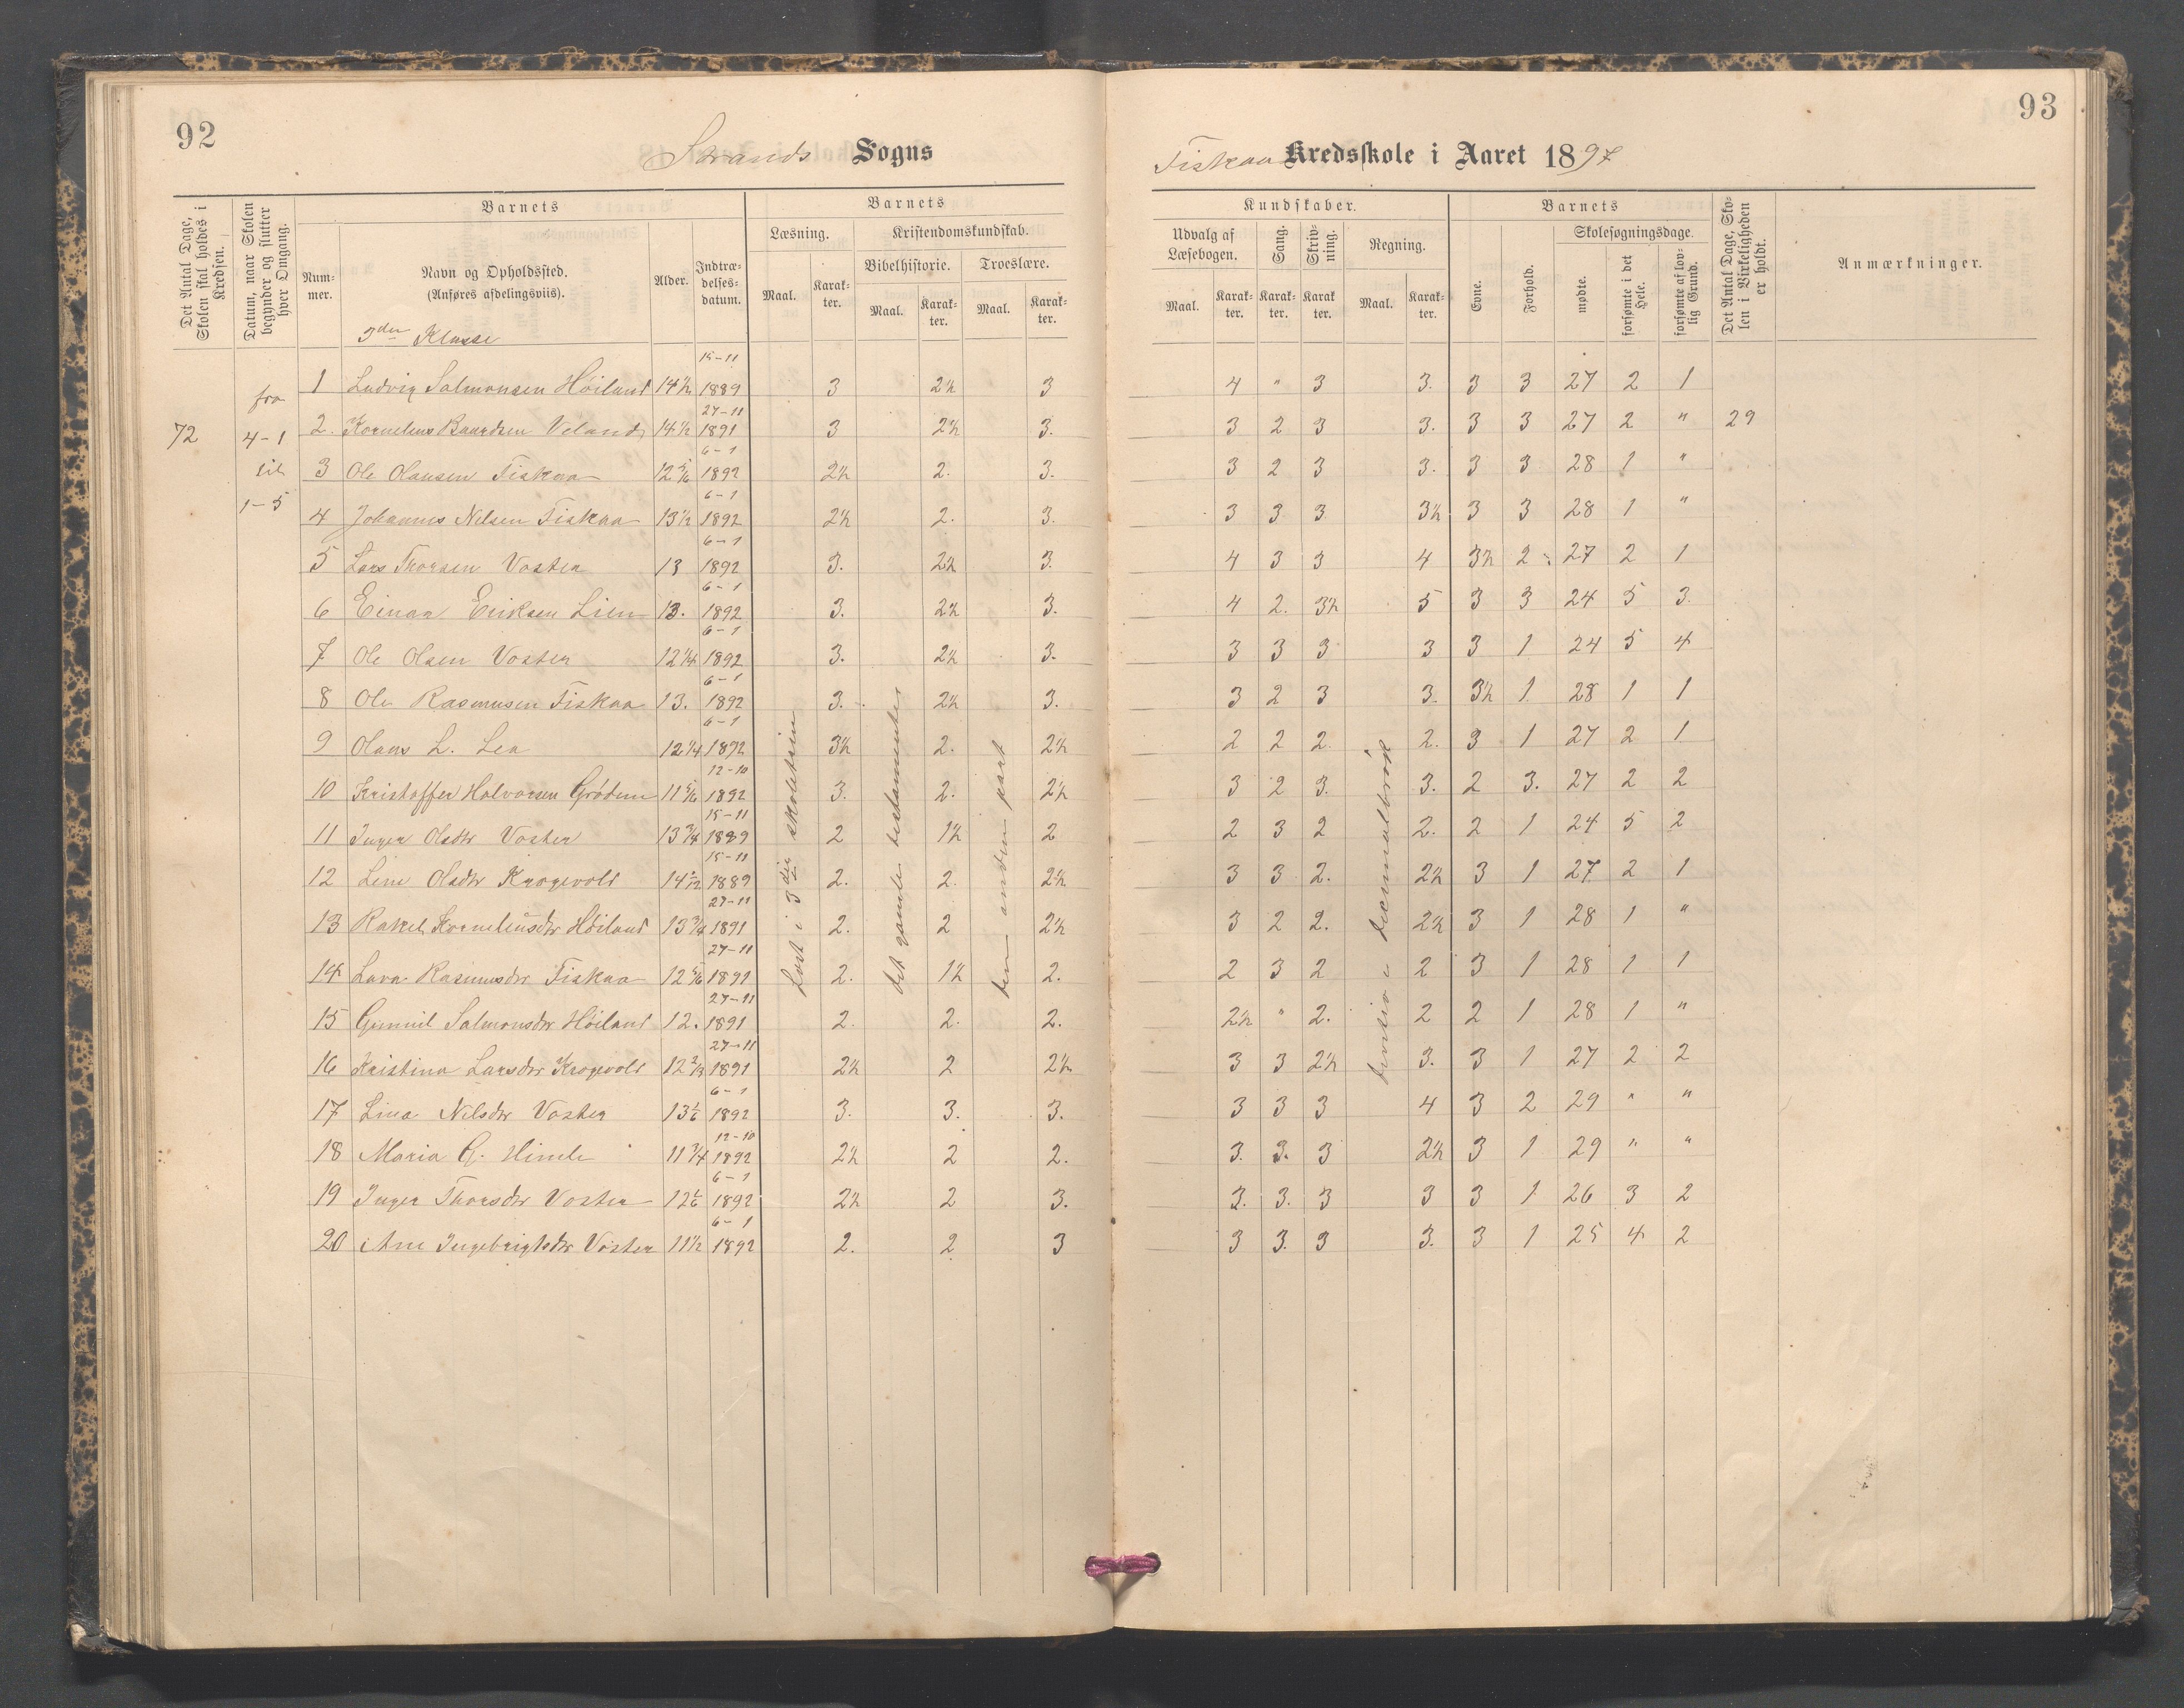 92
Strands Sogns
Det Antal Dage, Skolen skal holdes i Kredsen.
Datum, naar Skolen begynder og slutter hver Omgang.
Barnets
Barnets
Læsning.
Kristendomskundskab.
Bibelhistorie.
Troeslære.
Num-mer.
Navn og Opholdssted.
(Anføres afdelingsviis).
Alder.
Indtræ-delses-datum.
Maal.
Karak-ter.
Maal.
Karak-ter.
Maal.
Karak-ter.
3die Klasse
fra
72
4-1
til
1-5
1 Ludvig Salmonsen Høiland 14½ 15-11 1889 3 2½ 3
2. Kornelius Baardsen Veland 14½ 27-11 1891 3 2½ 3.
3 Ole Olausen Fiskaa 12 5/6 6-1 1892 2½ 2. 3.
4 Johannes Nelsen Fiskaa 13½ 6-1 1892 2½ 2. 3.
5 Lars Thorsen Voster 13 6-1 1892 3. 2½ 3.
6 Einar Eriksen Lien 13. 6-1 1892 3. 2½ 3.
7 Ole Olsen Voster 12¼ 6-1 1892 3. 2½ 3.
8 Ole Rasmusen Fiskaa 13. 6-1 1892 3. 2½ 3.
9 Olaus L. Lea 12¼ 6-1 1892 3½ 2. 2½
10 Kristoffer Halvorsen Grødem 11 5/6 12-10 1892 3. 2. 2½
11 Inger Olsdtr Voster 13¾ 15-11 1889 2 1½ 2
12 Line Olsdtr Krogevold 14 15-11 1889 2. 2. 2½
13 Rakel Korneliusdtr Høiland 13¾ 27-11 1891 2. 2 2½
14 Lava Rasmusdtr Fiskaa 12 5/6 27-11 1891 2. 1½ 2.
15 Gunnil Salmonsdtr Høiland 12. 27-11 1891 2. 2. 2.
16 Kristina Larsdtr Krogevold 12 2/3 27-11 1891 2½ 2 2½
17 Lina Nelsdtr Voster 13 1/6 6-1 1892 3. 3. 3.
18 Maria G. Himle 11¾ 12-10 1892 2½ 2 2.
19 Inger Thorsdtr Voster 12 1/6 6-1 1892 2½ 2 3.
20 Ane Ingebrigtsdtr Voster 11½ 6-1 1892 2. 2 3
Læst i 3die skoletrin
det gamle testamente
den anden part
93
Fiskaa Kredsskole i Aaret 1897
Kundskaber.
Barnets
Udvalg af Læsebogen.
Sang.
Skriv-ning.
Regning.
Evne.
Forhold.
Skolesøgningsdage.
Det Antal Dage, Sko-len i Virkeligheden er holdt.
Anmærkninger.
Maal.
Karak-ter.
Karak-ter.
Karak-ter.
Maal.
Karak-ter.
mødte.
forsømte i det Hele.
forsømte af lov-lig Grund.
4 " 3 3. 3 3 27 2 1
3 2 3 3. 3 3 27 2 " 29
3 2 3 3. 3 3 28 1 "
3 3 3 3½ 3 3 28 1 "
4 3 3 4 3½ 2 27 2 1
4 2. 3½ 5 3 3 24 5 3
3 3 3 3 3 1 24 5 4
3 2 3 3. 3½ 1 28 1 1
2 2 2. 2. 3 1 27 2 1
3 2 3. 3. 2 3. 27 2 2
2 3 2 2. 2 1 24 5 2
3 3 2. 2½ 3 1 27 2 1
3 2 2. 2½ 3 1 28 1 "
2 3 2 2 3 1 28 1 1
2½ " 2. 2 2 1 28 1 "
3 3 2½ 3. 3 1 27 2 2
3 3 3 4 3 2 29 " "
3. 3. 3 2½ 3 1 29 " "
3. 3. 3 3 3 1 26 3 2
3 3. 3 3. 3 1 25 4 2
division i decimalbrøk